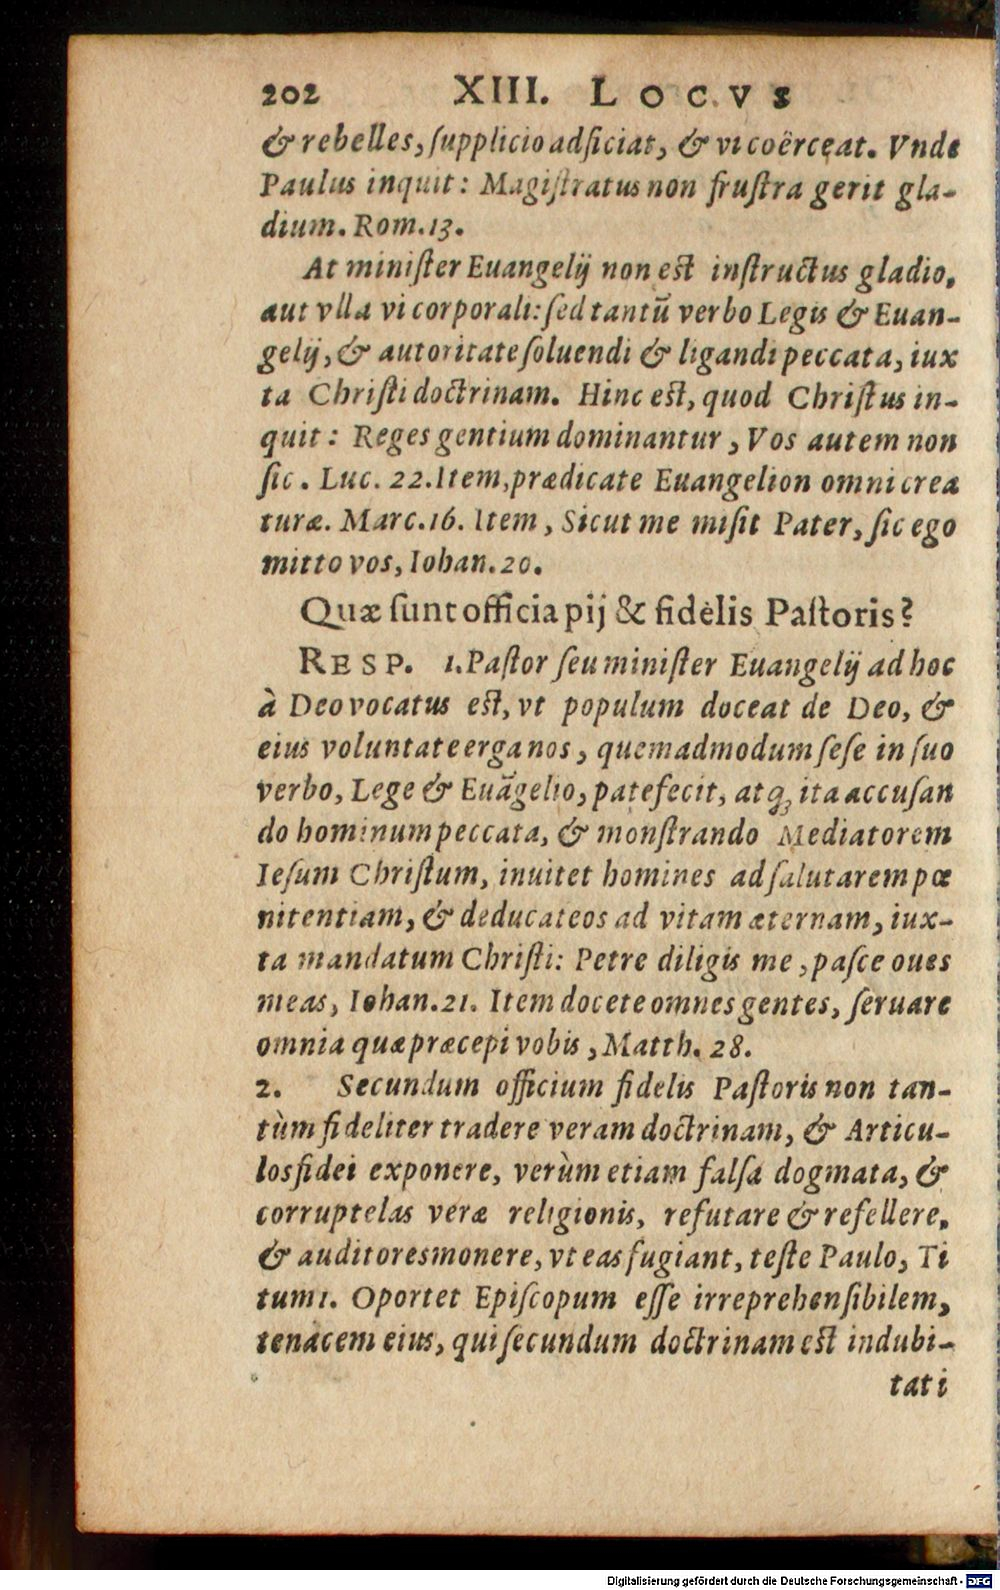 202 XIII. LOCVS
& rebelles, ſupplicio adficiat, & vi coërceat. Vnde
Paulus inquit: Magiſtratus non fruſtra gerit gla-
dium. Rom. 13.
At miniſter Euangelij non eſt inſtructus gladio,
aut vlla vi corporali: ſed tantū verbo Legis & Euan-
gelij, & autoritate ſoluendi & ligandi peccata, iux
ta Chriſti doctrinam. Hinc eſt, quod Chriſtus in-
quit: Reges gentium dominantur, Vos autem non
ſic. Luc. 22. Item, prædicate Euangelion omni crea
turæ. Marc. 16. Item, Sicut me miſit Pater, ſic ego
mitto vos, Iohan. 20.
Quæ ſunt officia pij & fidelis Paſtoris?
RESP. 1. Paſtor ſeu miniſter Euangelij ad hoc
à Deo vocatus eſt, vt populum doceat de Deo, &
eius voluntate erga nos, quemadmodum ſeſe in ſuo
verbo, Lege & Euāgelio, patefecit, atq; ita accuſan
do hominum peccata, & monſtrando Mediatorem
Ieſum Chriſtum, inuitet homines ad ſalutarem pœ
nitentiam, & deducat eos ad vitam æternam, iux-
ta mandatum Chriſti: Petre diligis me, paſce oues
meas, Iohan. 21. Item docete omnes gentes, ſeruare
omnia quæ præcepi vobis, Matth. 28.
2. Secundum officium fidelis Paſtoris non tan-
tùm fideliter tradere veram doctrinam, & Articu-
los fidei exponere, verùm etiam falſa dogmata, &
corruptelas veræ religionis, refutare & refellere,
& auditores monere, vt eas fugiant, teſte Paulo, Ti
tum 1. Oportet Epiſcopum eſſe irreprehenſibilem,
tenacem eius, qui ſecundum doctrinam eſt indubi-
tati
Digitalisierung gefördert durch die Deutsche Forschungsgemeinschaft - DFG